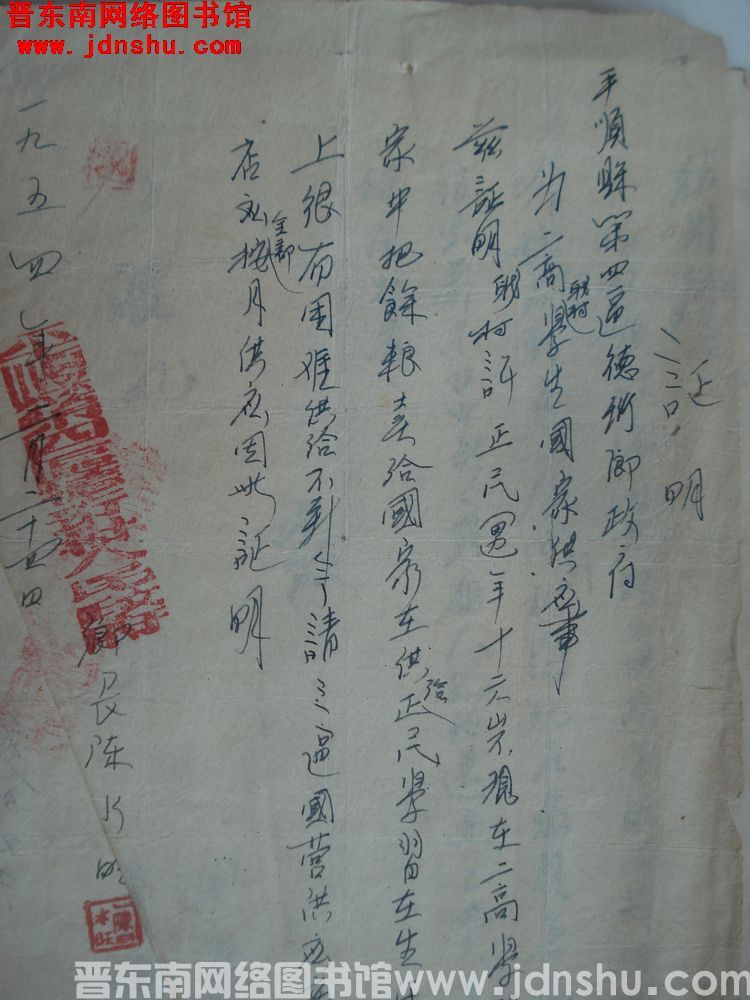 晋东南网络图书馆
www.jdnshu.com
证明
平順縣第四區德
为二高學生國家供应事
我村
兹証明我村許正民男年十六岁現在二高學
家中把餘粮卖给國家在供给正民學習在生
上很有困难供给不到今請三區國营供应
店应全部按月供应因此証明
一九五四年二月二十四日
鄉長陳
晋东南网络图书馆 www.jdnshu.com